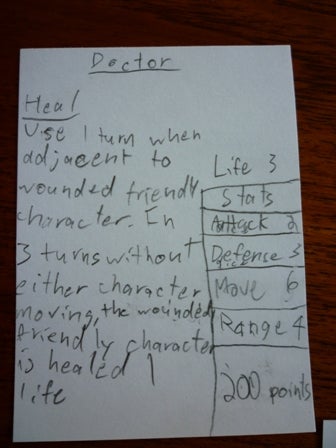 Doctor
Heal
Use 1 turn when
adjacent to
wounded friendly
character. In
3 turns without
either character
moving, the wounded
friendly character
is healed 1
life
Life 3
Stats
Attack 2
Defense 3
Move 6
Range 4
200 points